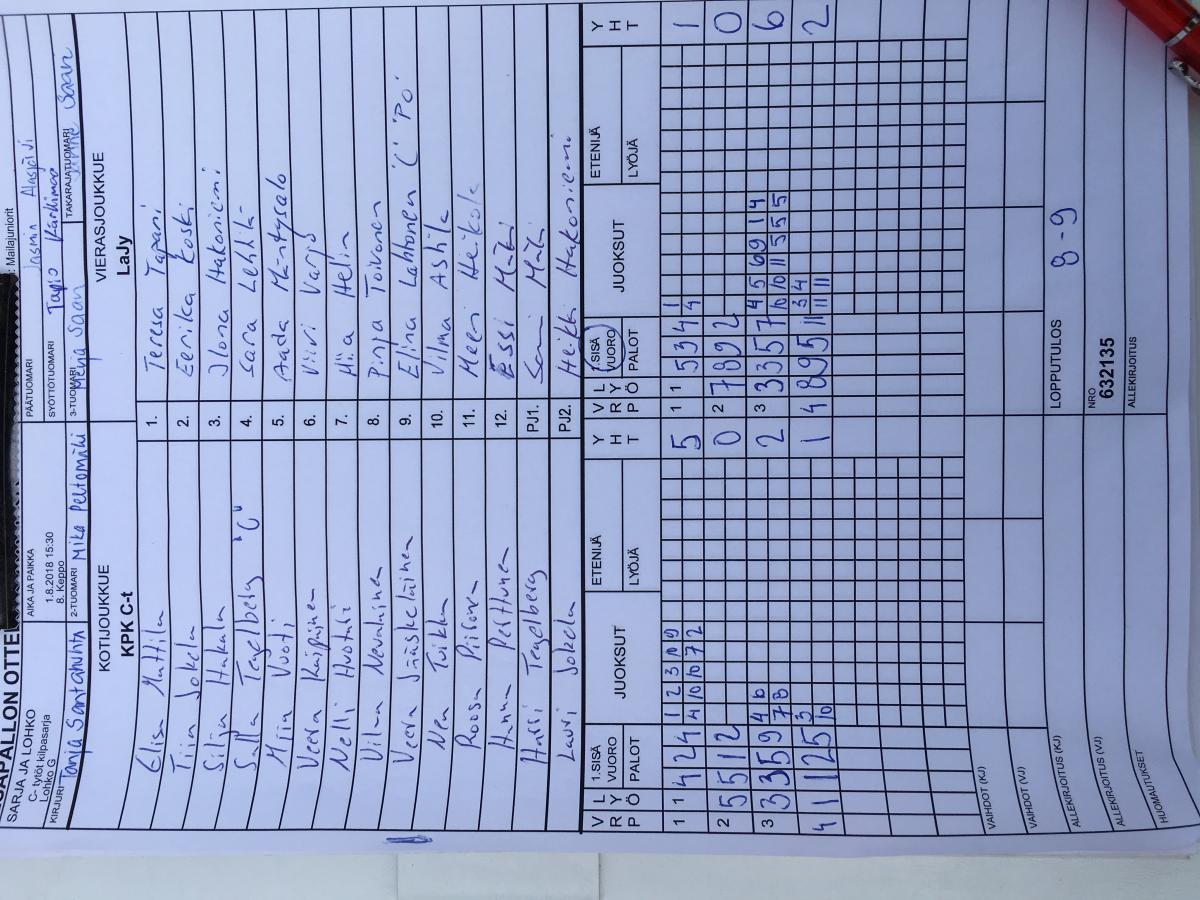 SAPALLON OTTEL
SARJA JA LOHKO
C- tytöt kilpasarja
Lohko G
AIKA JA PAIKKA
1.8.2018 15:30
8. Keppo
: Mailajuniorit
PÄÄTUOMARI Jasmin Alasjärvi
SYÖTTÖTUOMARI Tapio Karhimaa
KIRJURI Tanja Santahuhta
2-TUOMARI Mika Peltomäki
3-TUOMARI Menja Saan
TAKARAJATUOMARI Saan
KOTIJOUKKUE
KPK C-t
VIERASJOUKKUE
LaJy
Elisa Mattila 1. Teresa Tapani
Tiina Jokela 2. Eerika Koski
Silja Hakala 3. Ilona Hakoniemi
Salla Tegelberg "C" 4. Sara Lehtik
Miia Vuoti 5. Aada Mäntysalo
Veera Käipäinen 6. Viivi Varjo
Nelli Huotari 7. Miia Helin
Vilma Nevalainen 8. Pinja Toivonen
Veera Jääskeläinen 9. Elina Lahtonen "C" Po.
Nea Tuikka 10. Vilma Ashik
Roosa Piironen 11. Meeri Heikola
Hanna Perttunen 12. Essi Mäki
Harri Tegelberg PJ1. Sami Mäki
Lauri Jokela PJ2. Heikki Hakoniemi
VRP LYÖ 1.SISÄVUORO PALOT JUOKSUT ETENIJÄ LYÖJÄ YHT VRP LYÖ 1.SISÄVUORO PALOT JUOKSUT ETENIJÄ LYÖJÄ YHT
1 1 4 2 4 1 2 3 10 9 5 1 1 5 3 4 1 1
4 10 10 7 2 4
2 5 5 1 2 0 2 7 8 9 2 0
3 3 3 5 9 4 6 2 3 3 3 5 7 4 5 6 9 1 4 6
7 8 10 10 11 5 5 5
4 1 1 2 5 3 1 4 8 9 5 11 3 4 2
10 11 11
VAIHDOT (KJ)
VAIHDOT (VJ)
ALLEKIRJOITUS (KJ)
LOPPUTULOS 8-9
ALLEKIRJOITUS (VJ)
NRO
632135
HUOMAUTUKSET
ALLEKIRJOITUS